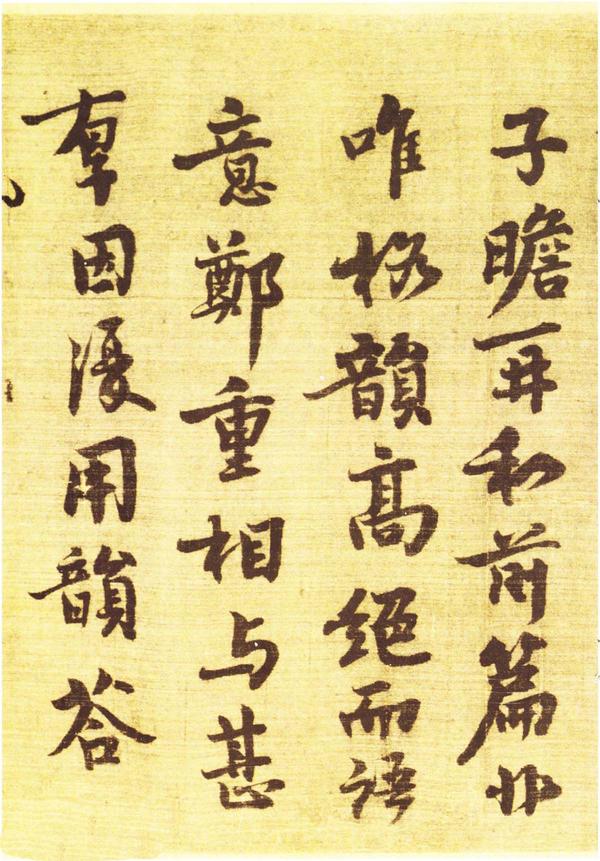 子瞻再和前篇非
唯格韻高絶而語
意鄭重相与甚
厚因復用韻荅